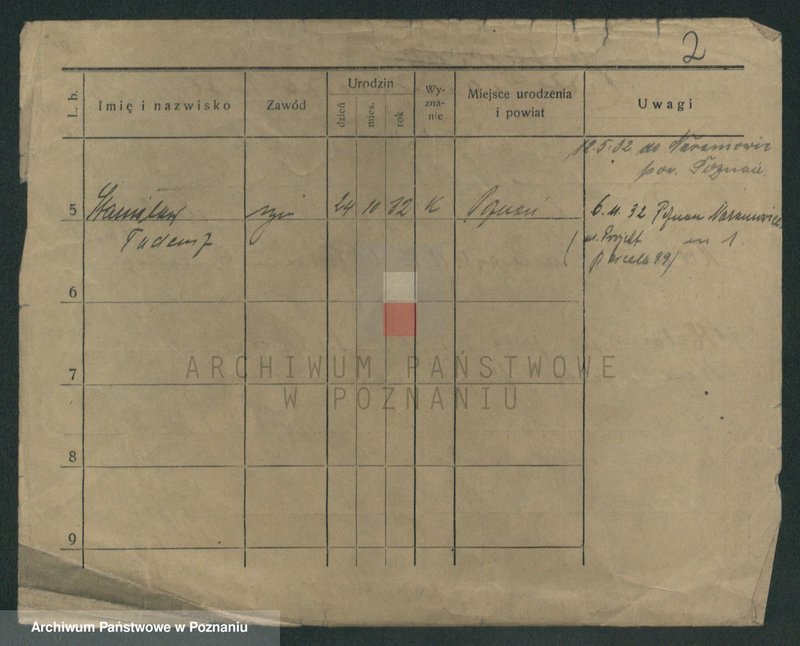 2
L. b.
Imię i nazwisko
Zawód
Urodzin
dzień
mies.
rok
Wy-
zna-
nie
Miejsce urodzenia
i powiat
Uwagi
12.5.32 do Naramowic
pow. Poznań
5 Stanisław syn 24 10 32 K Poznań 6.11.32 Poznań Naramowice
Tadeusz
m 1.
parcela 99)
6
7
8
9
ARCHIWUM PAŃSTWOWE
W POZNANIU
Archiwum Państwowe w Poznaniu